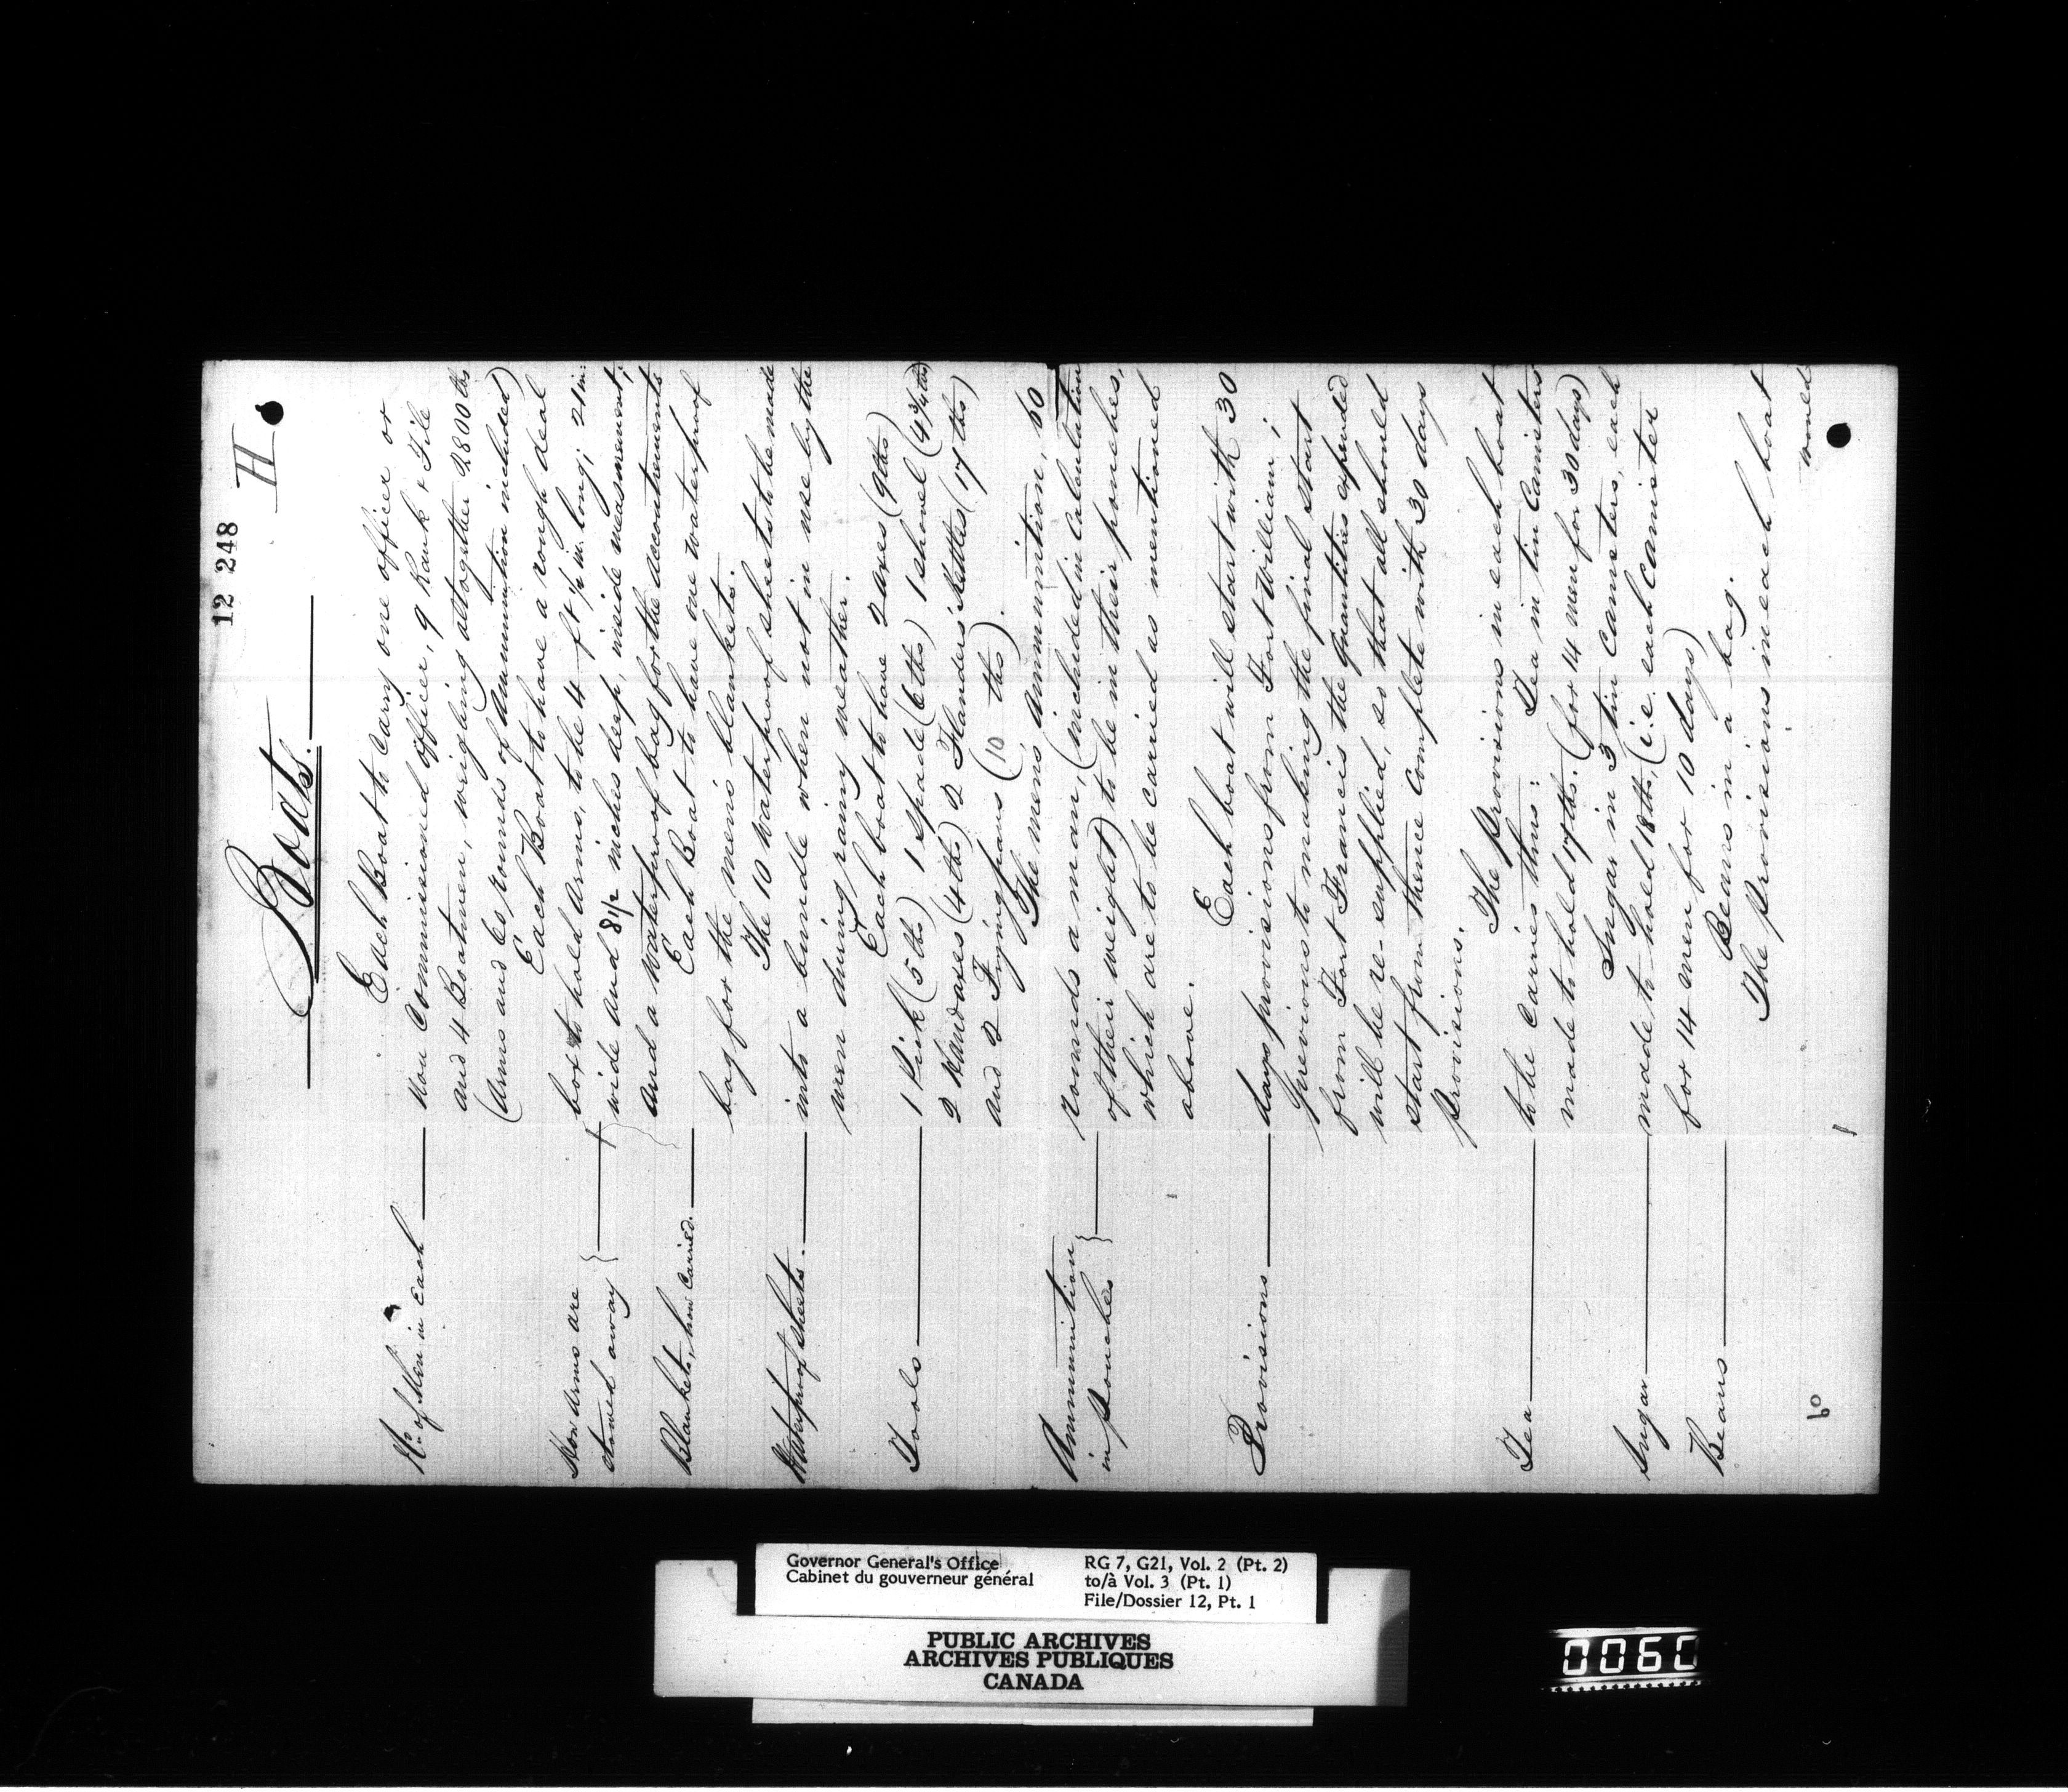 12 248
H
Boats.
No. of Men in Each
Each Boat to carry one officer or
non Commissioned officer, 9 Rank & File
and 4 Boatmen, weighing altogether 2800 lbs
(Arms and 60 rounds of ammunition included)
How Arms are
stowed away
Each Boat to have a rough deal
box to hold Arms, to be 4 ft ½ in. long; 21 in:
wide and 8½ inches deep, inside measurement;
and a waterproof bag for the accoutrements
Blankets, how Carried.
Each Boat to have one waterproof
bag for the men's blankets.
Waterproof sheets.
The 10 waterproof sheets to be made
into a bundle when not in use by the
men during rainy weather.
Tools
Each boat to have 2 axes (9 lbs)
1 Pick (5 lbs) 1 spade (6 lbs) 1 shovel (4¾ lbs)
2 Handaxes (4 lbs) 2 Flanders Kettles (17 lbs)
and 2 Frying pans (10 lbs).
Ammunition
in pouches
The men's ammunition, 60
rounds a man, (included in Calculation
of their weight) to be in their pouches,
which are to be carried as mentioned
above.
Provisions
Each boat will start with 30
days provisions from Fort William;
previous to making the final start
from Fort Francis the quantities expended
will be re-supplied, so that all should
start from thence Complete with 30 days
provisions.
The provisions in each boat
Tea
to be carried thus: Tea in tin Canisters
made to hold 17 lbs. (for 14 men for 30 days)
Sugar
Sugar in 3 tin Canisters, each
made to hold 18 lbs, (i.e. each Canister
for 14 men for 10 days)
Beans
Beans in a bag.
The provisions in each boat
would
60
Governor General's Office
Cabinet du gouverneur général
RG 7, G21, Vol. 2 (Pt. 2)
to/à Vol. 3 (Pt. 1)
File/Dossier 12, Pt. 1
PUBLIC ARCHIVES
ARCHIVES PUBLIQUES
CANADA
0060